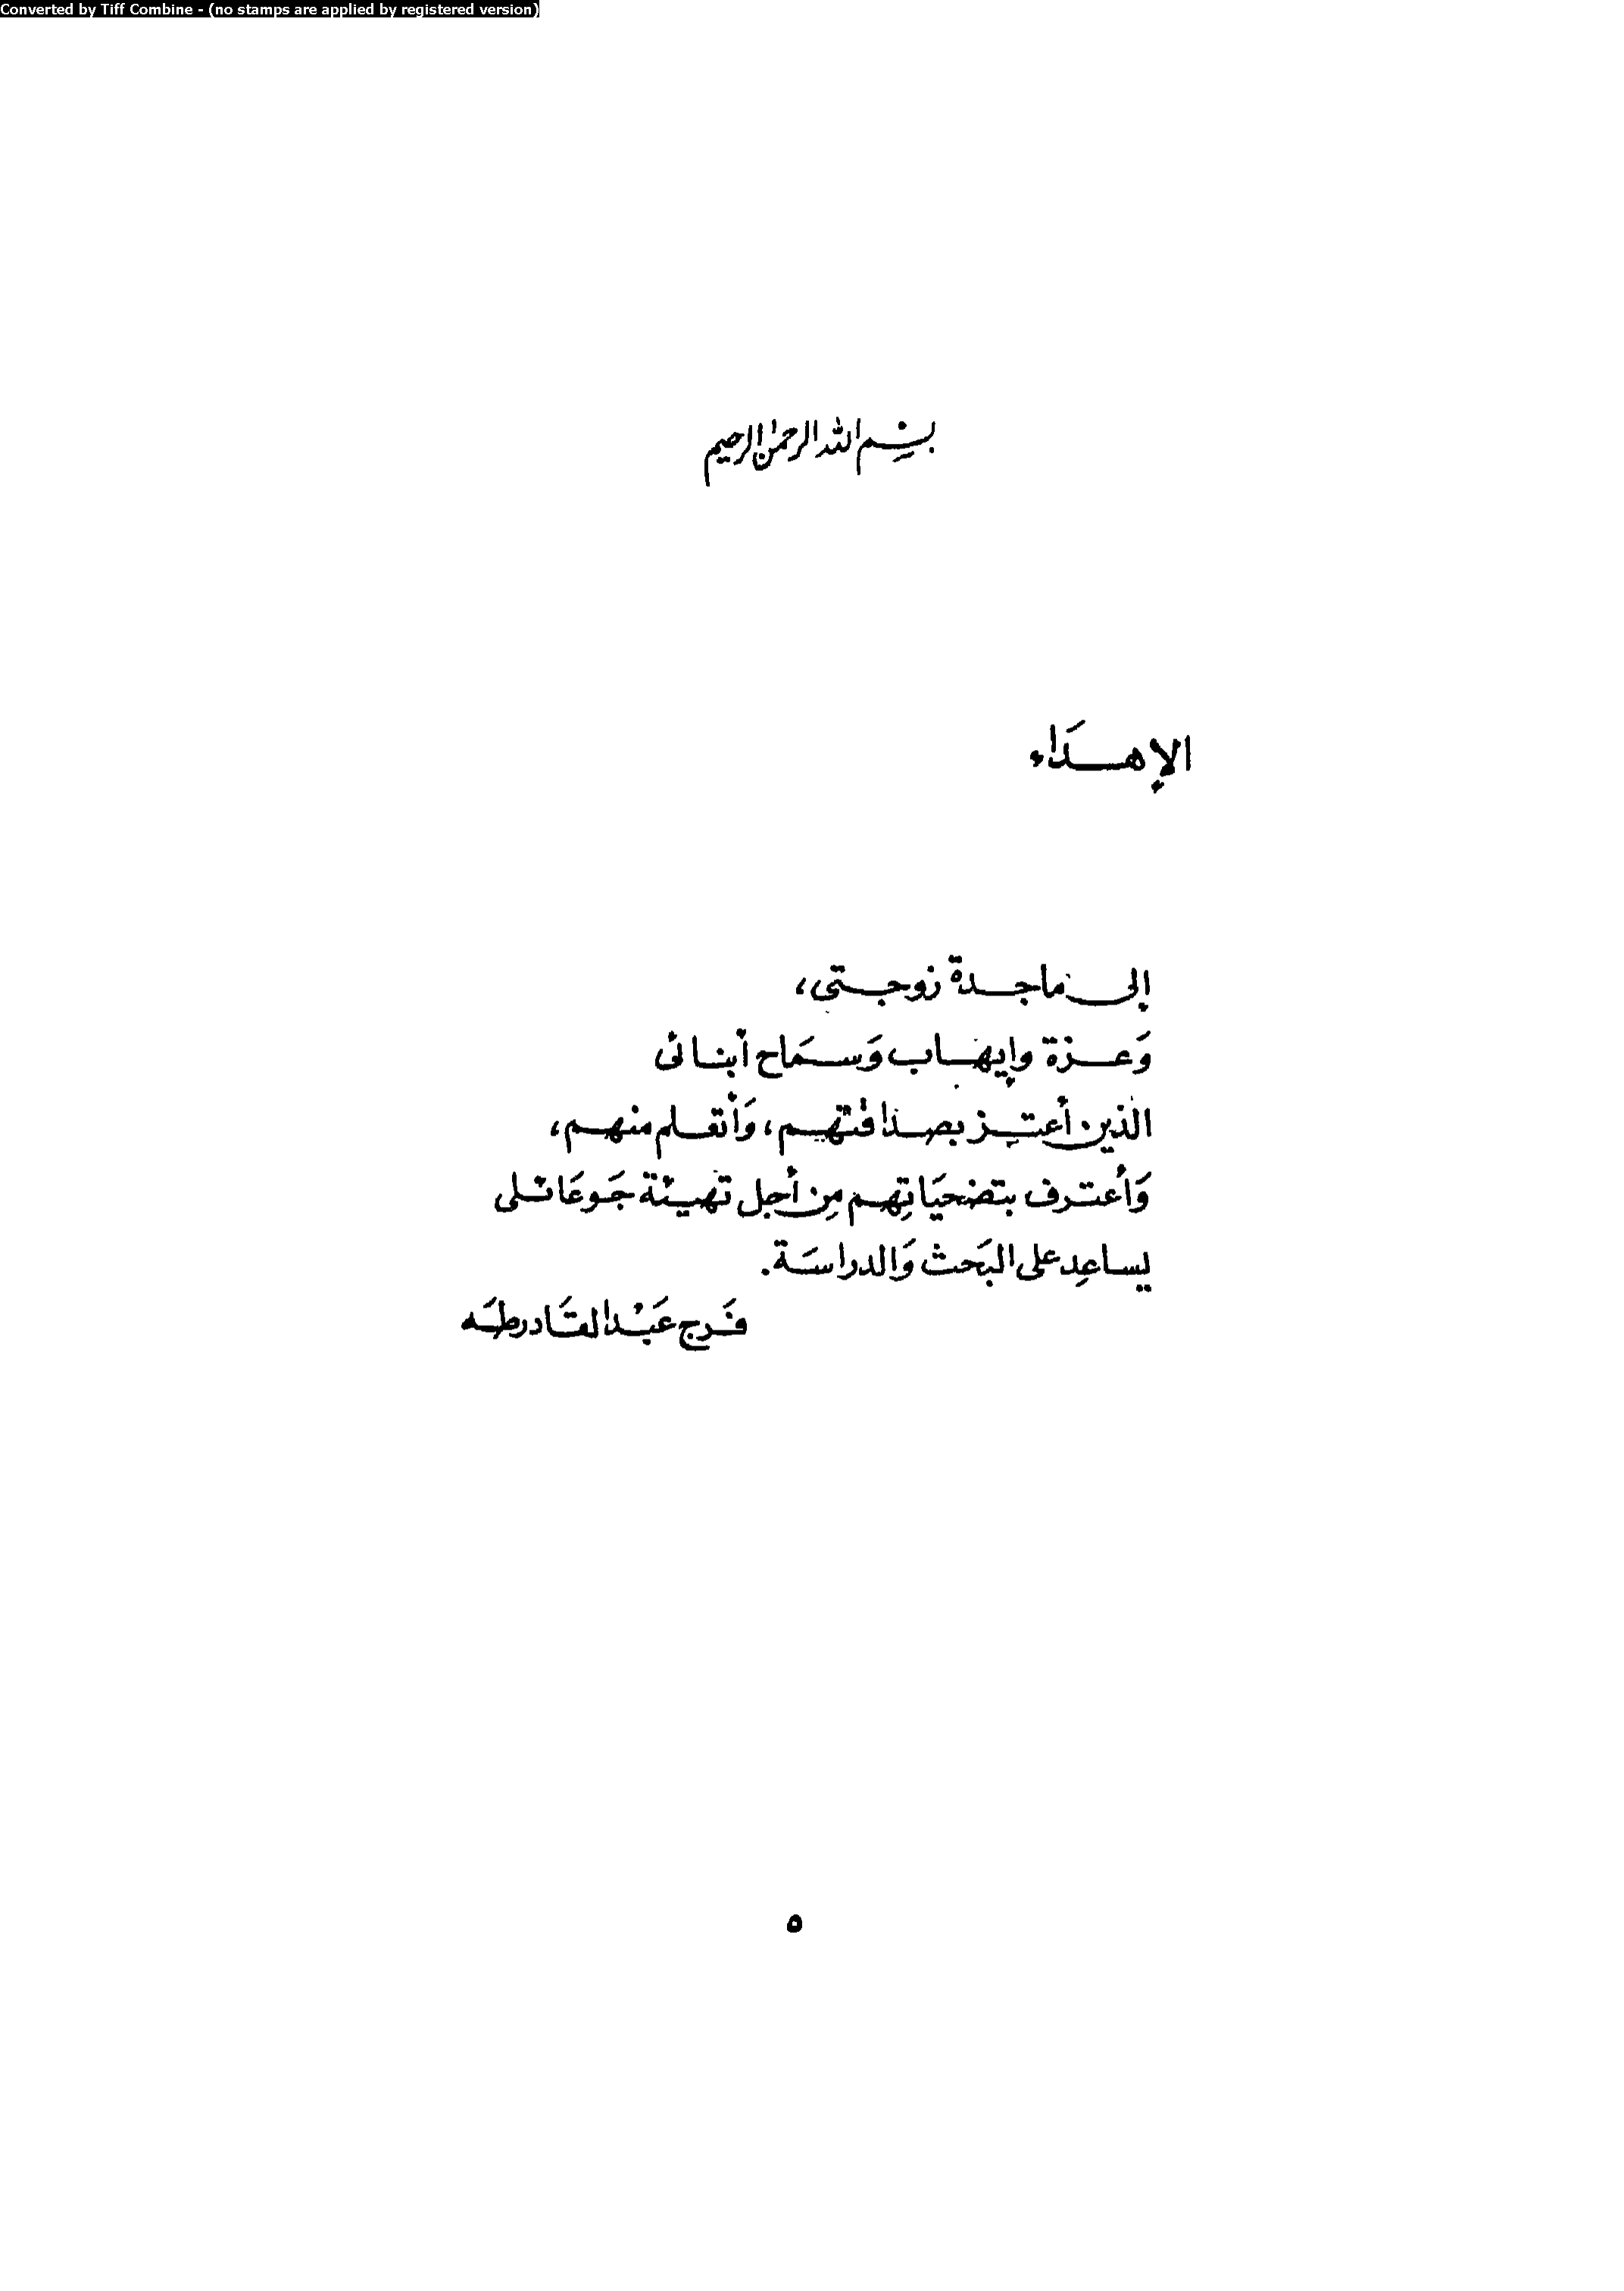 Converted by Tiff Combine - (no stamps are applied by registered version)
بسم الله الرحمن الرحيم
الإهدَاء
إلى ماجدة زوجتى،
وَعزة وإيهاب وَسمَاح أبنائى
الذين أعتز بصداقتهم، وَأتعلم منهم،
وَأعترف بتضحيَاتِهم مِن أجل تهيئة جَو عَائلى
يساعِد على البَحث وَالدراسَة.
فَرج عَبْد القَادر طَه
٥